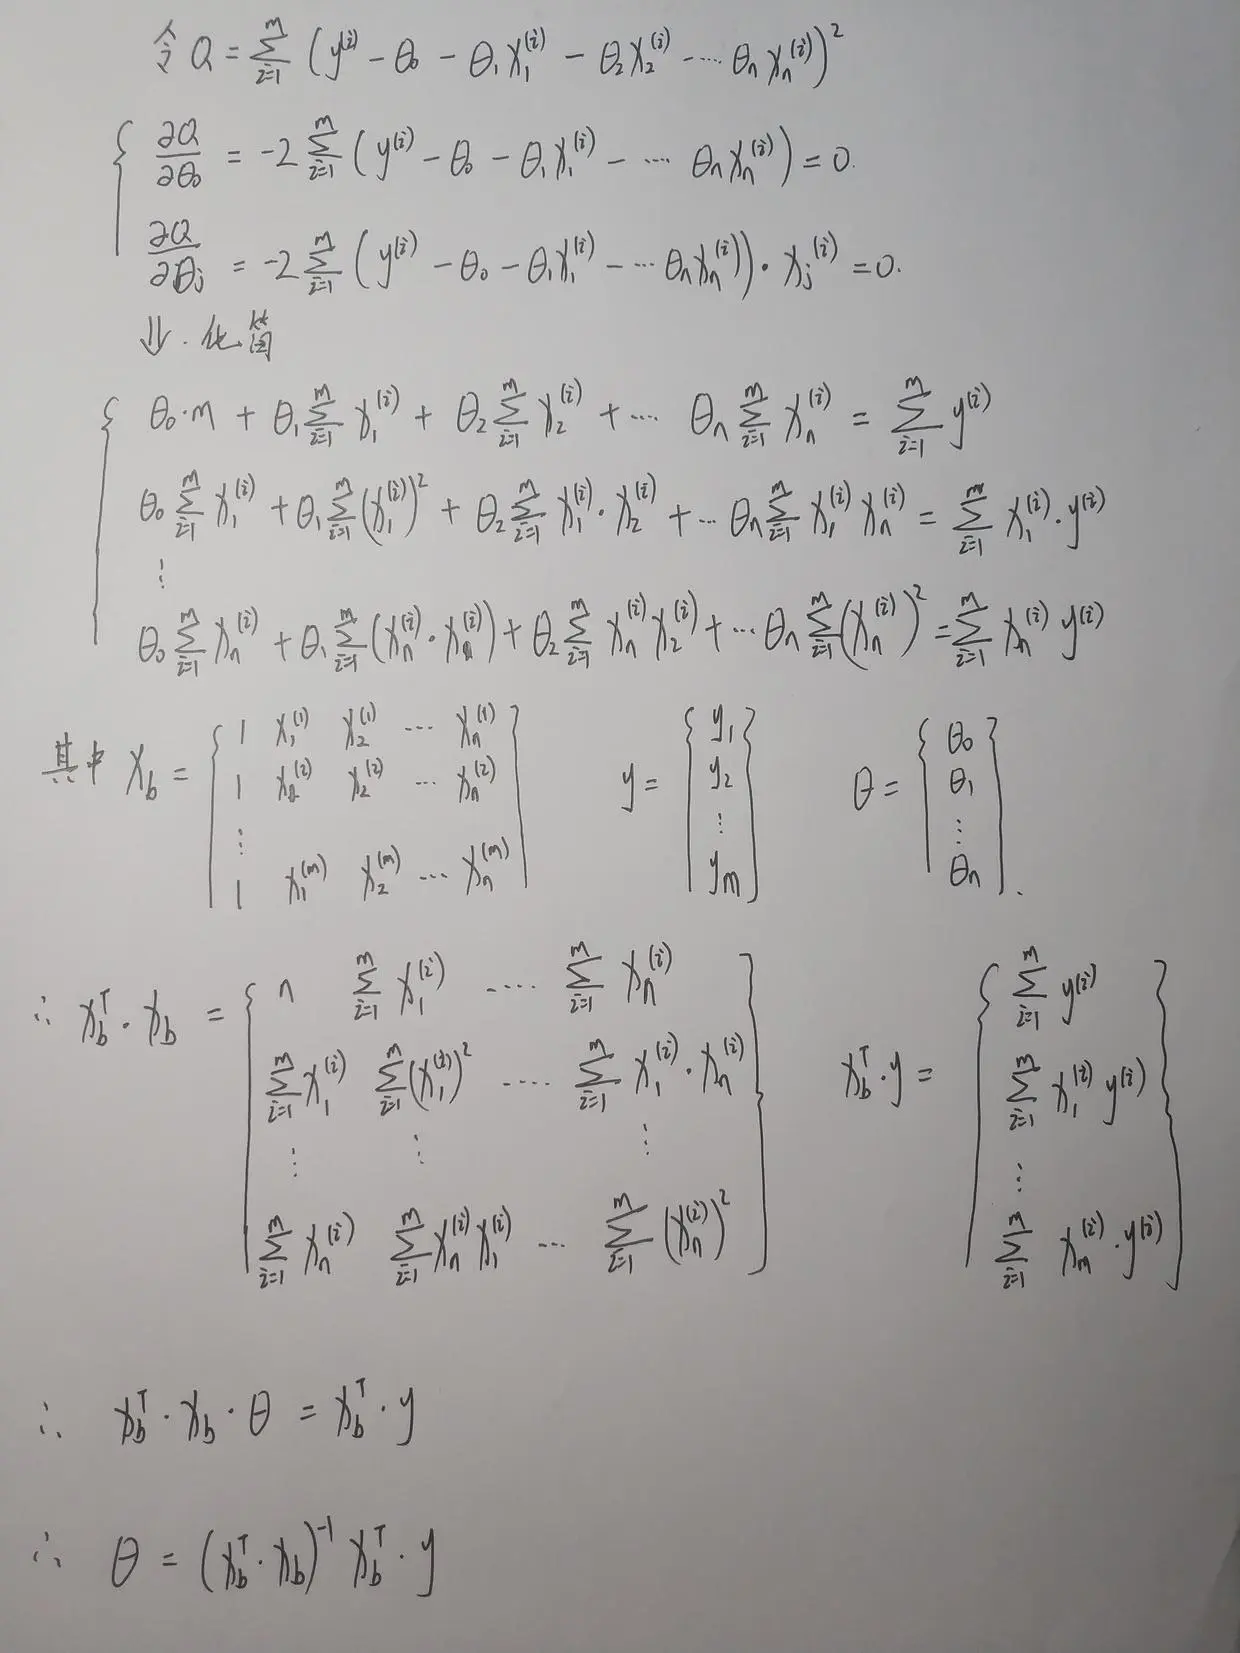 令 Q = ∑_{i=1}^{m} (y^{(i)} - θ₀ - θ₁X₁^{(i)} - θ₂X₂^{(i)} - ··· θₙXₙ^{(i)})²
∂Q/∂θ₀ = -2 ∑_{i=1}^{m} (y^{(i)} - θ₀ - θ₁X₁^{(i)} - ··· θₙXₙ^{(i)}) = 0.
∂Q/∂θⱼ = -2 ∑_{i=1}^{m} (y^{(i)} - θ₀ - θ₁X₁^{(i)} - ··· θₙXₙ^{(i)}) · Xⱼ^{(i)} = 0.
⇓ . 化简
θ₀·m + θ₁∑_{i=1}^{m} X₁^{(i)} + θ₂∑_{i=1}^{m} X₂^{(i)} + ··· θₙ∑_{i=1}^{m} Xₙ^{(i)} = ∑_{i=1}^{m} y^{(i)}
θ₀∑_{i=1}^{m} X₁^{(i)} + θ₁∑_{i=1}^{m} (X₁^{(i)})² + θ₂∑_{i=1}^{m} X₁^{(i)}·X₂^{(i)} + ··· θₙ∑_{i=1}^{m} X₁^{(i)} Xₙ^{(i)} = ∑_{i=1}^{m} X₁^{(i)}·y^{(i)}
⋮
θ₀∑_{i=1}^{m} Xₙ^{(i)} + θ₁∑_{i=1}^{m} (Xₙ^{(i)}·Xₙ^{(i)}) + θ₂∑_{i=1}^{m} Xₙ^{(i)}X₂^{(i)} + ··· θₙ∑_{i=1}^{m} (Xₙ^{(i)})² = ∑_{i=1}^{m} Xₙ^{(i)} y^{(i)}
其中 X_b = { 1 X₁^{(1)} X₂^{(1)} ··· Xₙ^{(1)} } y = { y₁ } θ = { θ₀ }
1 X₂^{(2)} X₂^{(2)} ··· Xₙ^{(2)} y₂ θ₁
⋮ ⋮ ⋮
1 X₁^{(m)} X₂^{(m)} ··· Xₙ^{(m)} yₘ θₙ .
∴ X_b^T · X_b = { n ∑_{i=1}^{m} X₁^{(i)} ···· ∑_{i=1}^{m} Xₙ^{(i)} } X_b^T · y = { ∑_{i=1}^{m} y^{(i)} }
∑_{i=1}^{m} X₁^{(i)} ∑_{i=1}^{m} (X₁^{(i)})² ···· ∑_{i=1}^{m} X₁^{(i)}·Xₙ^{(i)} ∑_{i=1}^{m} X₁^{(i)} y^{(i)}
⋮ ⋮ ⋮ ⋮
∑_{i=1}^{m} Xₙ^{(i)} ∑_{i=1}^{m} Xₙ^{(i)}X₁^{(i)} ··· ∑_{i=1}^{m} (Xₙ^{(i)})² ∑_{i=1}^{m} Xₘ^{(i)}·y^{(i)}
∴ X_b^T · X_b · θ = X_b^T · y
∴ θ = (X_b^T · X_b)^{-1} X_b^T · y